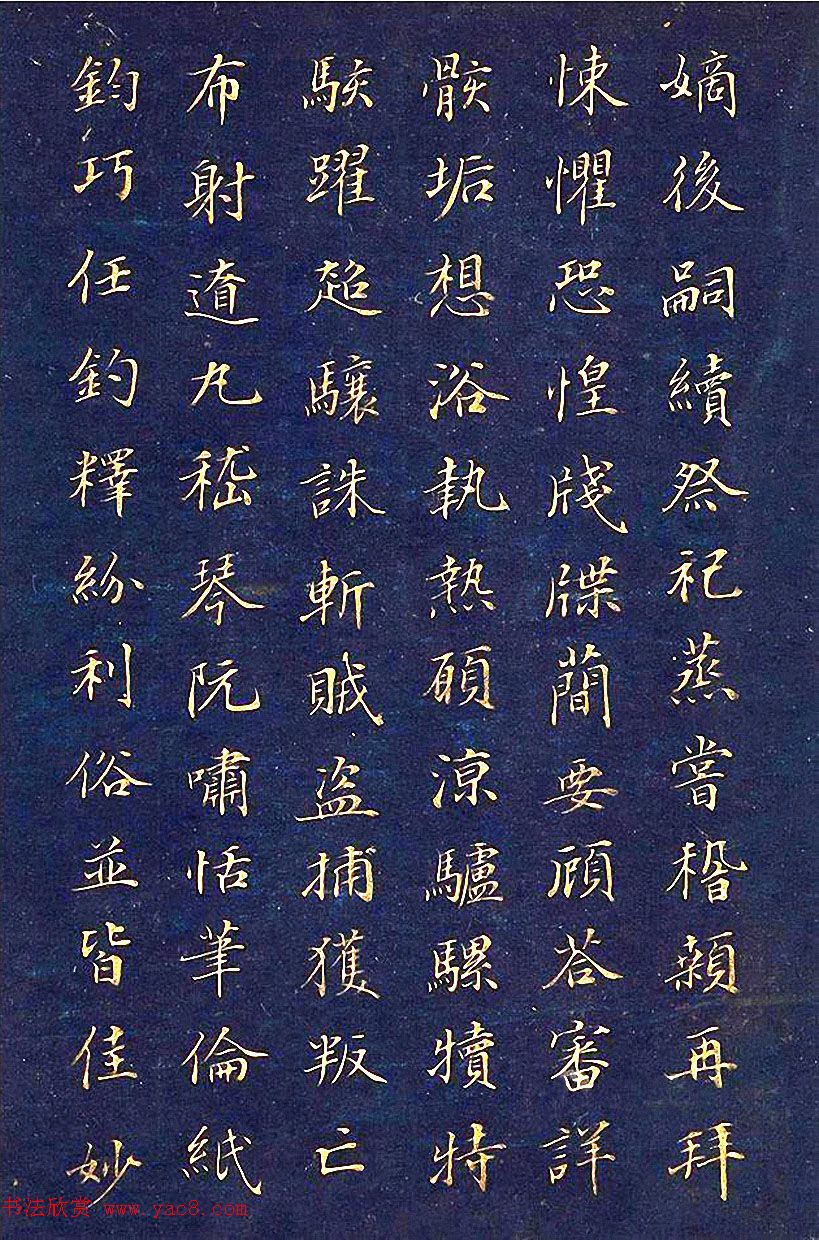 嫡後嗣續祭祀蒸嘗稽顙再拜
悚懼恐惶牋牒簡要顧荅審詳
骸垢想浴執熱願涼驢騾犢特
駭躍超驤誅斬賊盜捕獲叛亡
布射遼丸嵇琴阮嘯恬筆倫紙
鈞巧任釣釋紛利俗並皆佳妙
书法欣赏 www.yac8.com